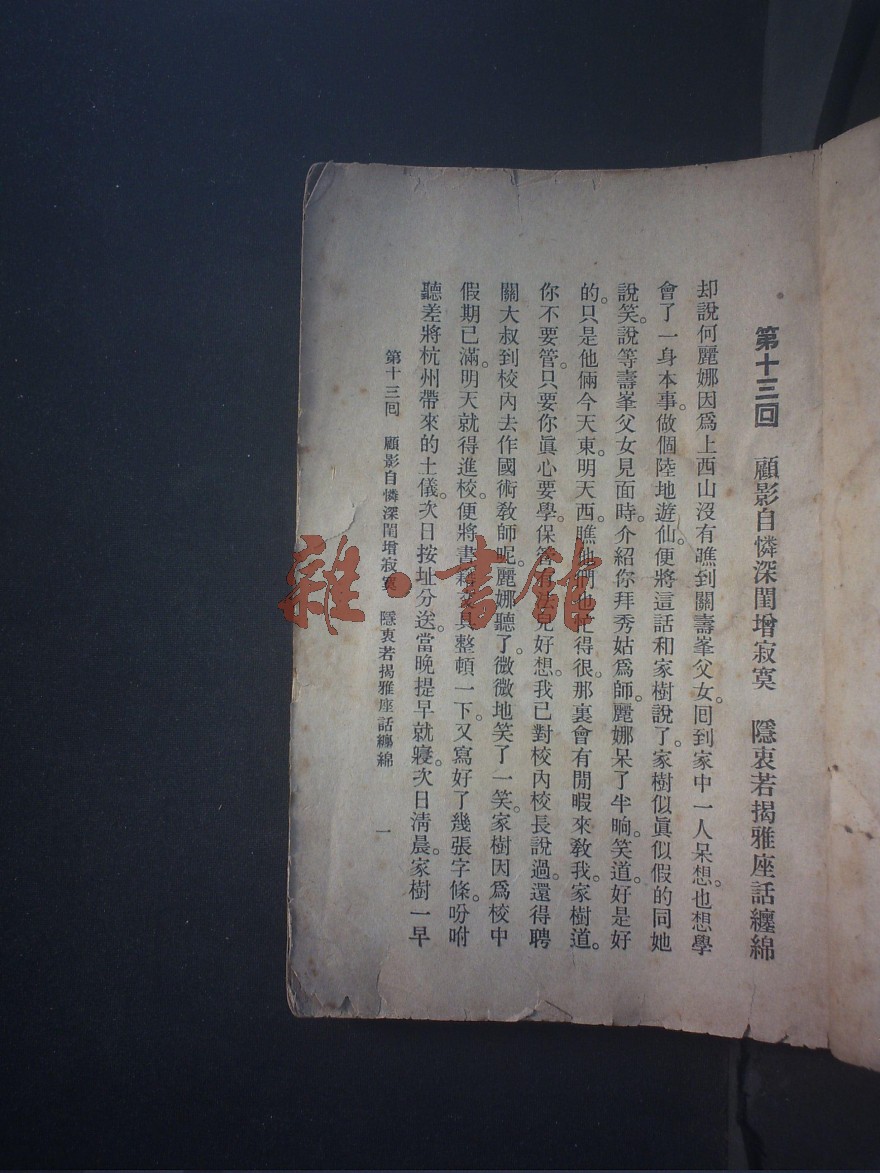 第十三回　顧影自憐深閨增寂寞　隱衷若揭雅座話纏綿
却說何麗娜因爲上西山沒有瞧到關壽峯父女。回到家中一人呆想。也想學
會了一身本事。做個陸地遊仙。便將這話和家樹說了。家樹似眞似假的同她
說笑。說等壽峯父女見面時。介紹你拜秀姑爲師。麗娜呆了半晌。笑道。好是好
的。只是他倆今天東。明天西。瞧他們也忙得很。那裏會有閒暇來敎我。家樹道。
你不要管。只要你眞心要學。保管有法兒好想。我已對校內校長說過。還得聘
關大叔到校內去作國術敎師呢。麗娜聽了。微微地笑了一笑。家樹因爲校中
假期已滿。明天就得進校。便將書籍文具整頓一下。又寫好了幾張字條。吩咐
聽差將杭州帶來的土儀。次日按址分送。當晚提早就寢。次日淸晨。家樹一早
第十三回　顧影自憐深閨增寂寞　隱衷若揭雅座話纏綿　一
雜·書館